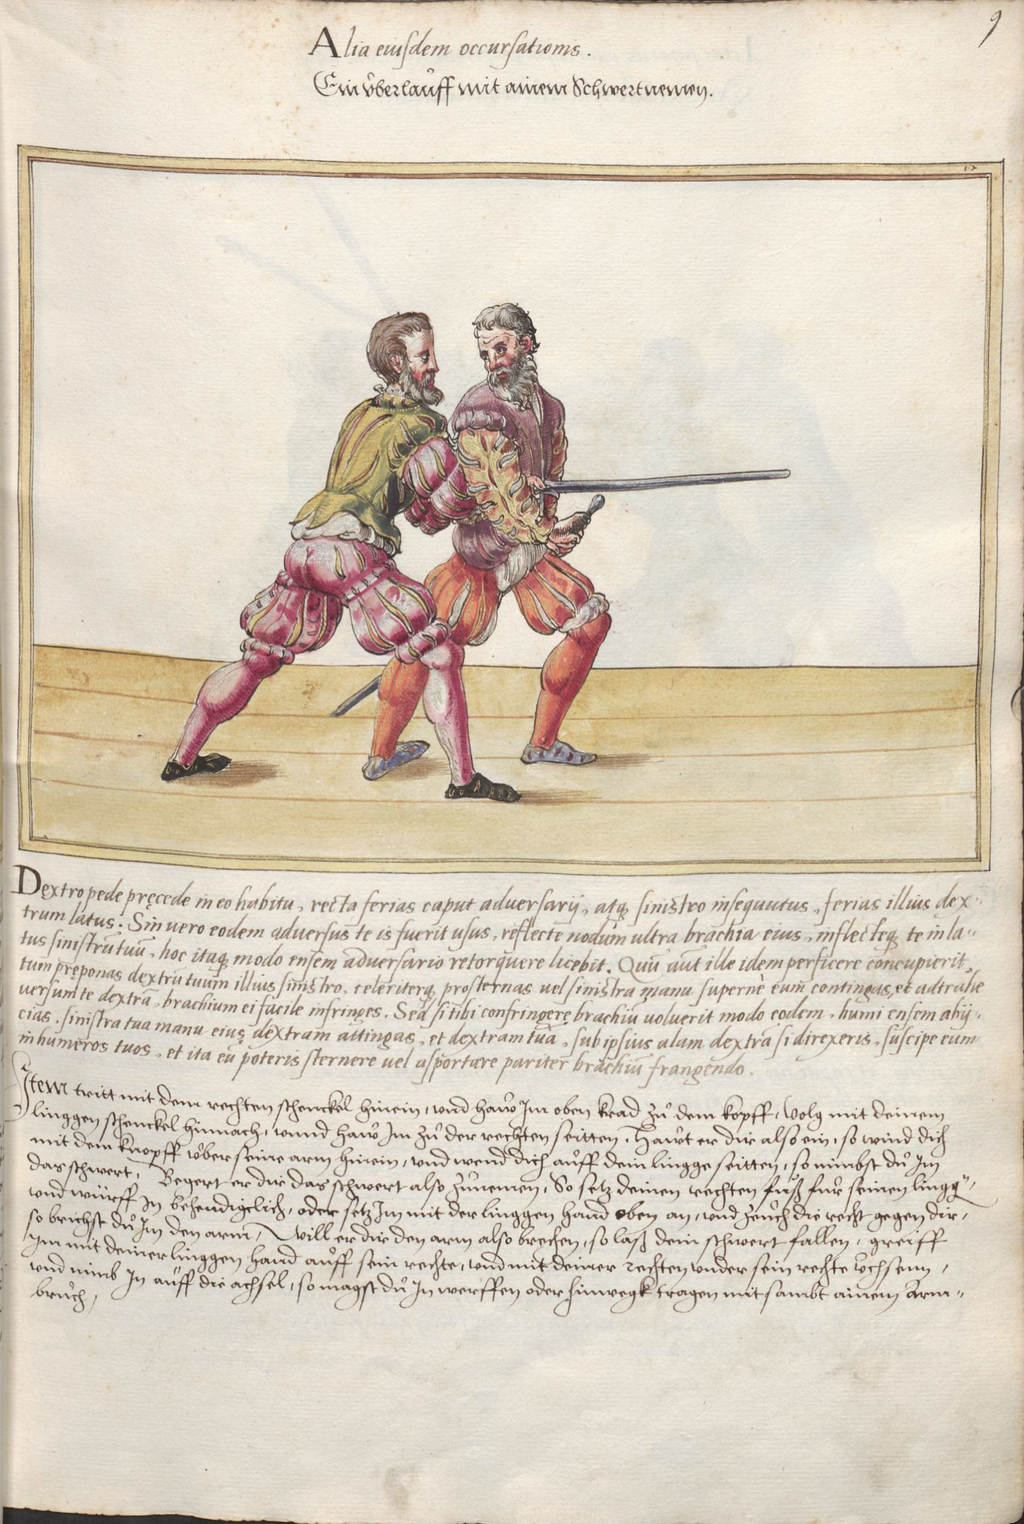 9
Alia eiusdem occursationis.
Ein v̊berlauff mit ainem Schwertnemen.
Dextro pede pręcede in eo habitu, recta ferias caput adversarij, atq̨ sinistro insequutus, ferias illius dex-
trum latus: Sin vero eodem adversus te is fuerit usus, reflecte nodum ultra brachia eius, inflecteq̨ te in la-
tus sinistrũ tuũ, hoc itaq̨ modo ensem adversario retorquere licebit. Quũ aut ille idem perficere concupierit,
tum preponas dextrũ tuum illius sinistro, celeriterq̨ prosternas vel sinistra manu superne eum contingas, et adtrahe
versum te dextra, brachium ei facile infringes. Sed si tibi confringere brachiũ voluerit modo eodem, humi ensem abij-
cias, sinistra tua manu eius dextram attingas, et dextram tuã, sub ipsius alam dextrã si direxeris, suscipe eum
in humeros tuos, et ita eũ poteris sternere vel asportare pariter brachiũ frangendo.
Item tritt mit dem rechten schenckel hinein, vnd haw Im oben krad zů dem kopff, volg mit deinem
linggen schenckel hinnach, vnnd haw Im zů der rechten seitten. Hawt er dir also ein, so wind dich
mit dem knopff v̊ber seine arm hinein, vnd wend dich auff dein lingge seitten, so nimbst dů Im
das schwert, Begert er dir das schwert also zůnemen, So setz deinen rechten fůß fůr seinen lingg-,
vnd wůrff In behendigclich, oder setz Im mit der linggen hand oben an, vnd zeůch die recht gegen dir,
so brichst dů Im den arm, Will er dir den arm also brechen, so laß dein schwert fallen, greiff
Im mit deiner linggen hand auff sein rechte, vnd mit deiner rechten vnder sein rechte v̊chsenn,
vnd nimb In auff die achsel, so magst dů In werffen oder hinwegk tragen mit sambt ainem Arm-
brůch,